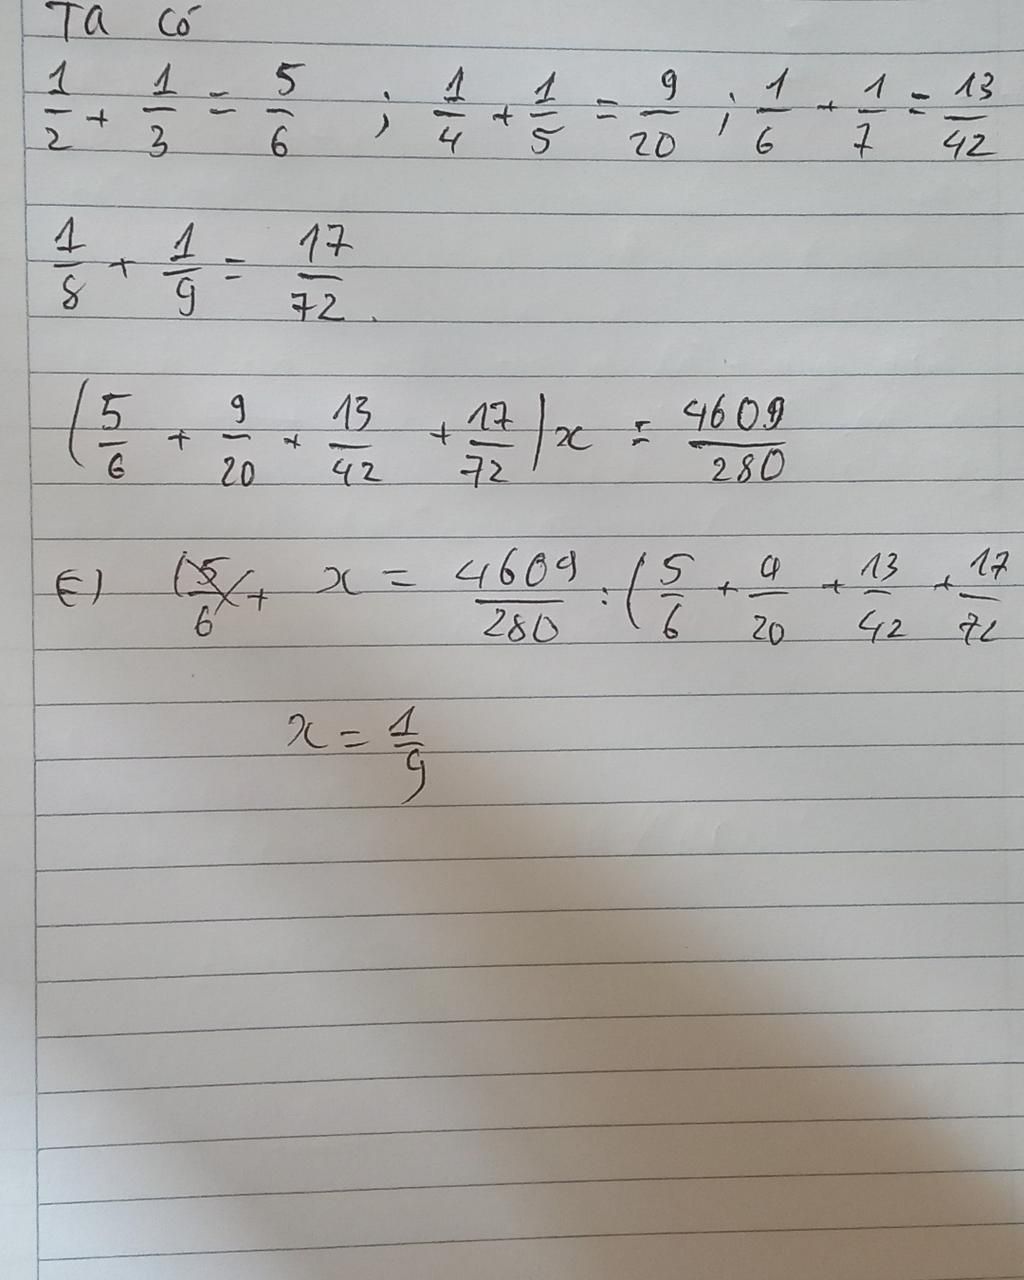 Ta có
1/2 + 1/3 = 5/6 ; 1/4 + 1/5 = 9/20 ; 1/6 + 1/7 = 13/42
1/8 + 1/9 = 17/72.
(5/6 + 9/20 + 13/42 + 17/72)x = 4609/280
E) (5/6 + x = 4609/280 : (5/6 + 9/20 + 13/42 + 17/72
x = 1/9